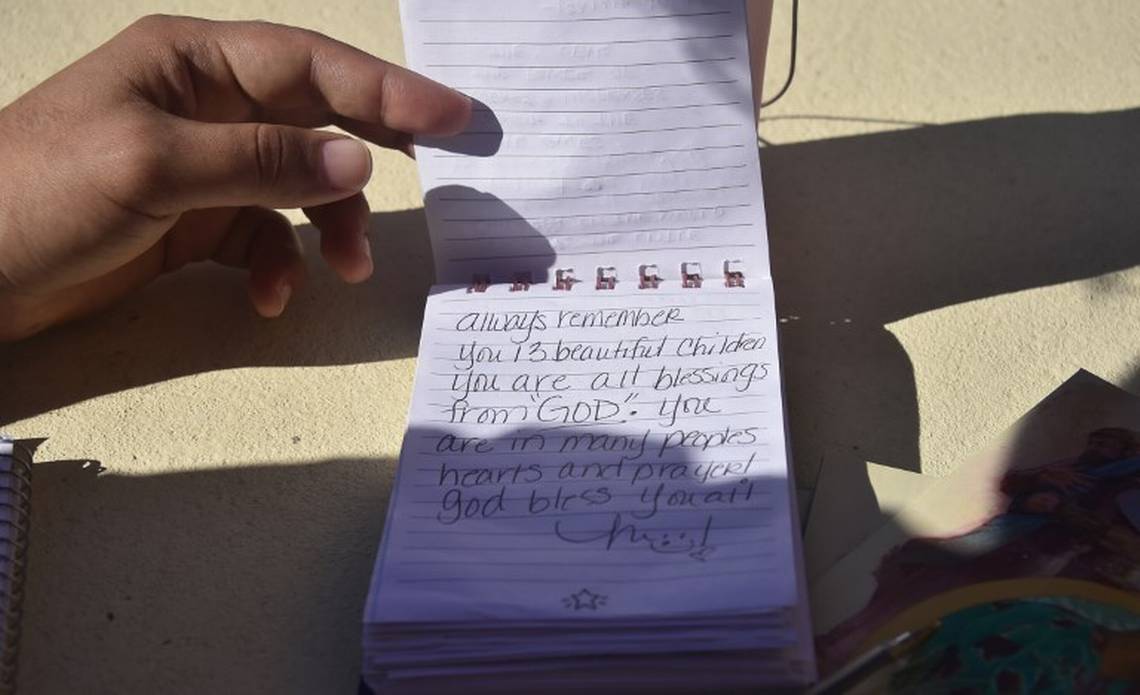 always remember
you 13 beautiful children
you are all blessings
from "GOD". you
are in many peoples
hearts and prayer!
god bless you all